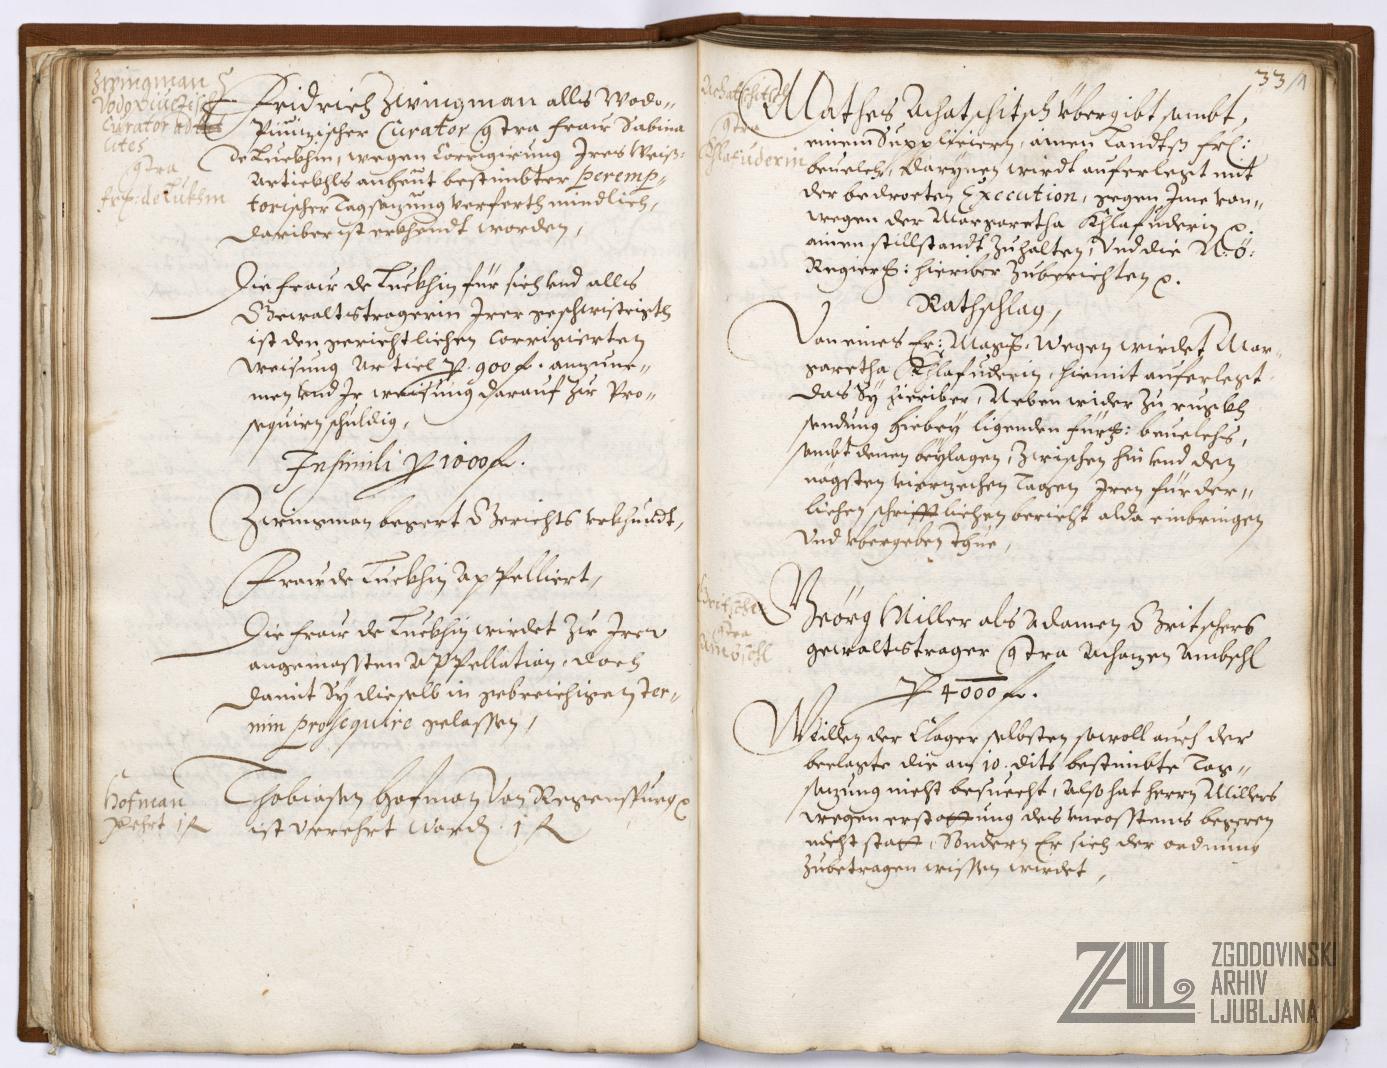 Zwingman
Curator ad
lites
ctra
fr: de Lukhin
Fridrich Zwingman alls Wodo-
Piuizischer Curator ctra fraw Sabina
de Lukhin, wegen Corrigierung Ires Weiß-
Artickhls anheut bestimbter peremp-
torischer Tagsazung verferth mindlich,
dariber ist erkhendt worden,
Die fraw de Lukhin für sich vnd alls
Gewaltstragerin Irer geschwistrigth
ist den gerichtlichen Corrigierten
Weisung Articl p. 900 fl. anzune-
men vnd Ir weisung darauf zu Pro-
sequirn schuldig,
In simili p 1000 fl.
Zwingman begert Gerichts vrkhundt,
Fraw de Lukhin Appelliert,
Die fraw de Lukhin wirdet zu Irer
angemassten Appellation, doch
damit Sy dieselb in gebreichigen ter-
min prosequire gelassen,
Hofman
verehrt 1 fl
Thobiasen Hofman von Regenspurg
ist verehrt word. 1 fl
33
Achatschitsch
ctra
Khlafuderin
Mathes Achatschitsch vbergibt sambt
einem Suppliciern, ainen Landts frl:
beuelch, darynen wirdt auferlegt mit
der bedroeten Execution, gegen Ime von-
wegen der Margaretha Khlafuderin
ainen stillstandt zuhalten, vnd die N: Ö:
Regierg: hieriber zuberichten
Rathschlag,
Von eines Er: Mag: wegen wirdet Mar-
garetha Khlafuderin hiemit auferlegt
das Sy hieriber, Neben wider zu rugkh
sendung hiebey ligenden für: beuelchs,
sambt denen beylagen, zwischen hin vnd den
nägsten vierzechen Tagen Iren fürder-
lichen schrifftlichen bericht alda einbringen
vnd vbergeben thue,
ctra
Georg Miller als Adamen Gritschers
gewaltstrager ctra Achazen Ambschl
p 4000 fl.
Weillen der Clager selbsten sowoll auch der
beclagte die an 10. dits bestimbte Tag-
sazung nicht besuecht, also hat herrn Millers
wegen erstattung des vncosstens begeren
nicht statt, Sondern Er sich der ordnung
zubetragen wissen wirdet,
ZAL
ZGODOVINSKI
ARHIV
LJUBLJANA